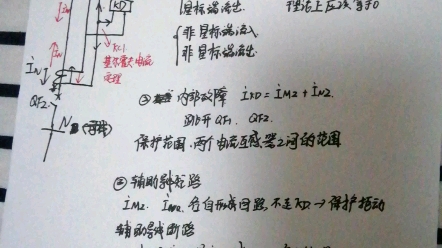 KD
星标端流出
理论上应该等于0
İM
İN
KCL
基尔霍夫电流定理
{ 非星标端流入
非星标端流出
İN
QF2
N
③ 内部故障 İKD = İM2 + İN2
跳开QF1、QF2
保护范围:两个电流互感器之间的范围
② 辅助导线短路
İM2、İN2 各自形成回路,不走KD → 保护拒动
辅助导线断路